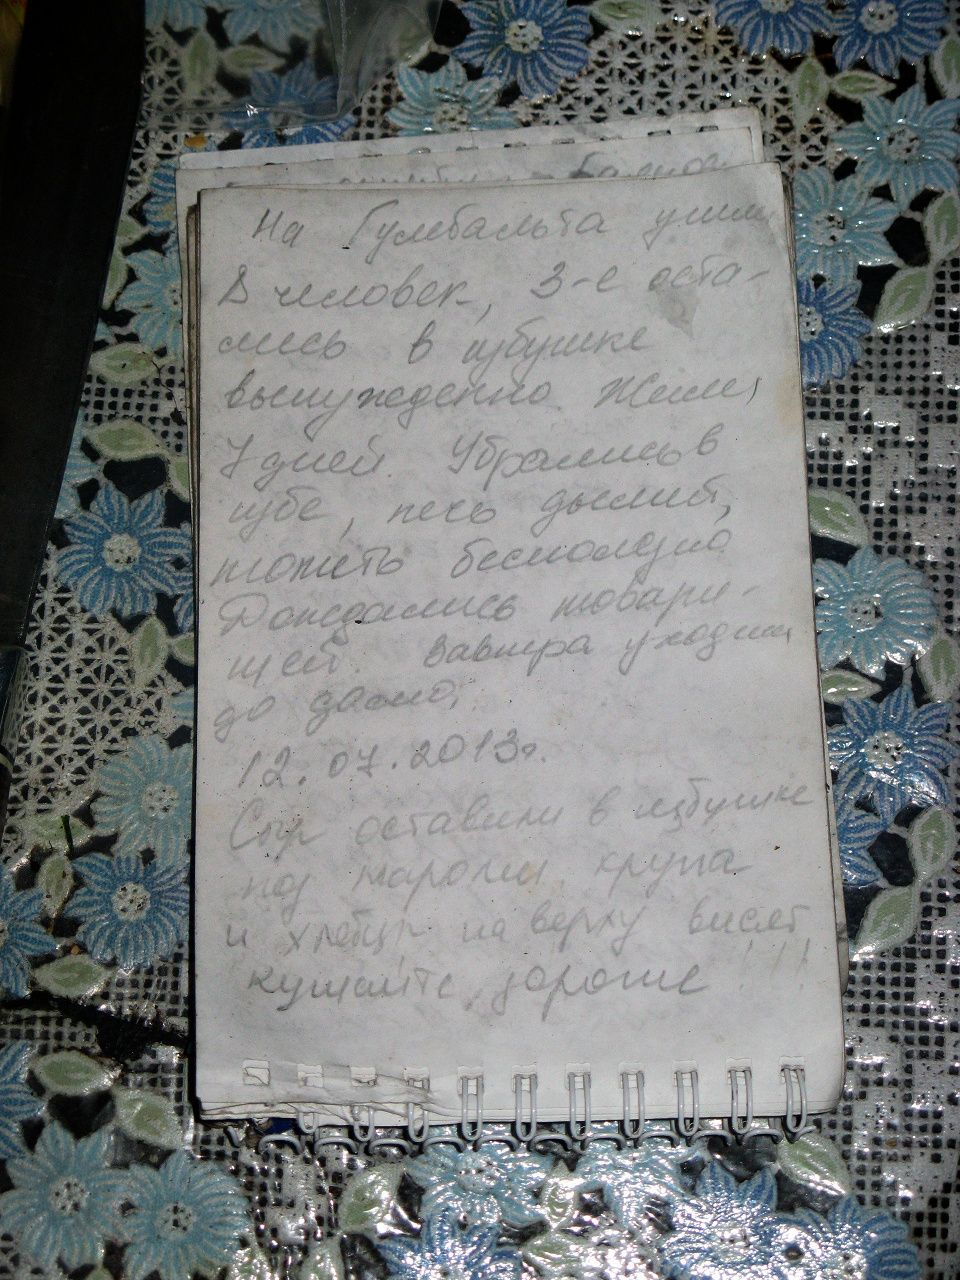 На Гумбальта ушли
8 человек, 3-е оста-
лись в избушке
вынужденно. Жили,
7 дней. Убрались в
избе, печь дымит,
топить бесполезно
Дождались товари-
щей. Завтра уходим
до дому.
12.07.2013г.
Сыр оставили в избушке
под нарами. крупа
и хлебцы на верху висят
кушайте, дорогие !!!